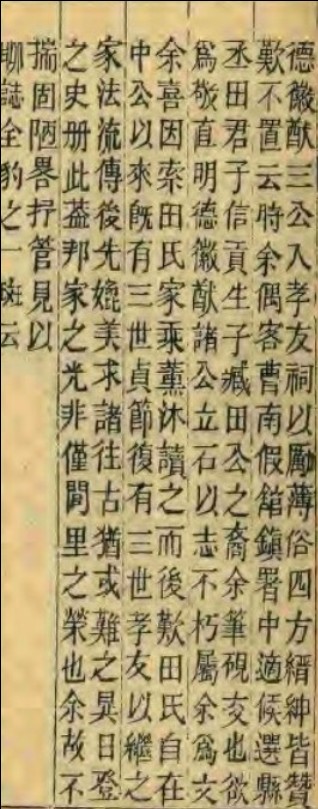 德徽猷三公入孝友祠以勵薄俗四方縉紳皆贊
歎不置云時余偶客曹南假館鎮署中適候選縣
丞田君子信貢生子臧田公之裔余筆硯交也欲
爲敬直明德徽猷諸公立石以志不朽屬余爲文
余喜因索田氏家乘薰沐讀之而後歎田氏自在
中公以來旣有三世貞節復有三世孝友以繼之
家法流傳後先媲美求諸往古猶或難之異日登
之史册此葢邦家之光非僅閭里之榮也余故不
揣固陋畧抒管見以
聊誌全豹之一斑云